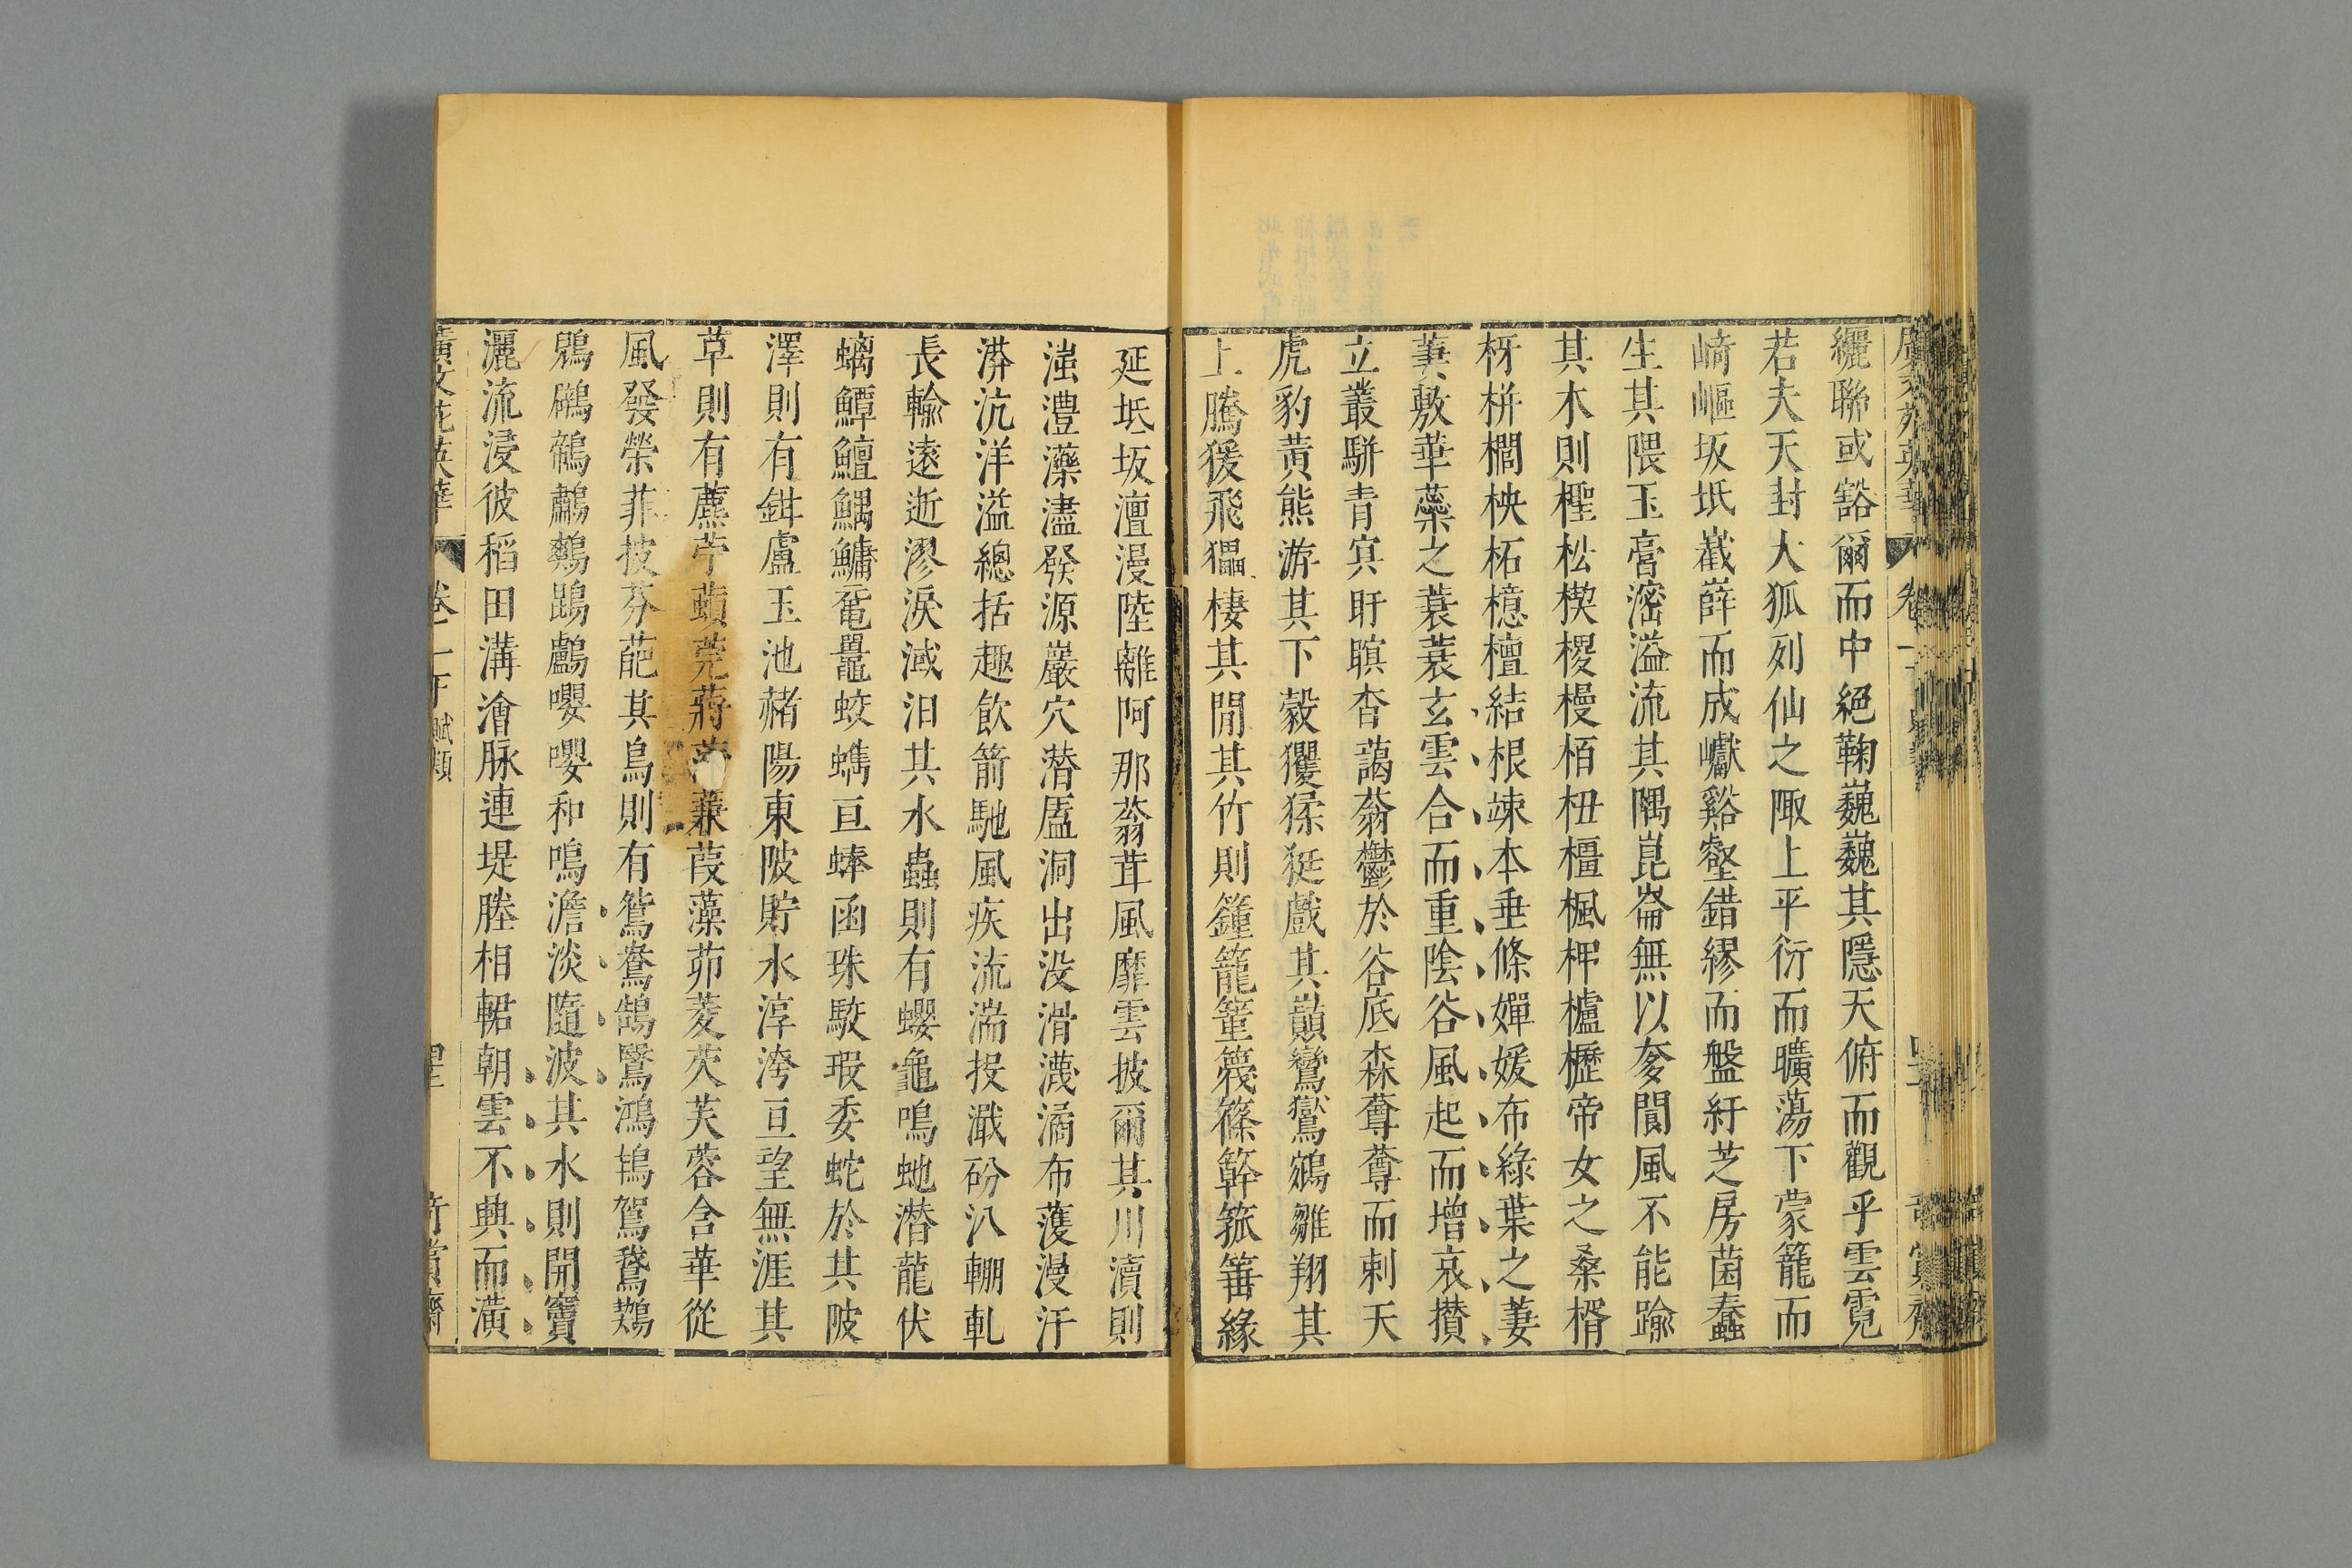 纚聯或豁爾而中絕鞠巍巍其隱天俯而觀乎雲霓
若夫天封大狐列仙之陬上平衍而曠蕩下蒙籠而
崎嶇坂坻嶻嶭而成巘谿壑錯繆而盤紆芝房菌蠢
生其隈玉膏滵溢流其隅崑崙無以奓閬風不能踰
其木則檉松楔㮨槾栢杻橿楓柙櫨櫪帝女之桑楈
枒栟櫚柍柘檍檀結根竦本垂條嬋媛布綠葉之萋
萋敷華蘂之蓑蓑玄雲合而重陰谷風起而增哀攢
立叢駢青㝠盱瞑杳藹蓊鬱於谷底森蓴蓴而刺天
虎豹黃熊游其下縠玃猱狿戲其巔鸞鸑鵷雛翔其
上騰猨飛蠝棲其閒其竹則籦籠䈽篾篠簳箛箠緣
延坻坂澶漫陸離阿那蓊茸風靡雲披爾其川瀆則
滍澧灤濜發源巖穴潛㕎洞出没滑瀎潏布濩漫汗
漭沆洋溢總括趣飲箭馳風疾流湍投濈砏汃輣軋
長輸遠逝漻淚淢汨其水蟲則有蠳龜鳴虵潛龍伏
螭鱏鱣鰅鱅黿鼉蛟蠵巨蜯函珠駮瑕委蛇於其陂
澤則有鉗盧玉池赭陽東陂貯水渟洿亘望無涯其
草則有藨苧薠莞蔣蒹葭藻茆菱芡芙蓉含華從
風發榮菲披芬葩其鳥則有鴛鴦鵠鷖鴻鴇鴐鵞鷞
鶂鸊鶙鷫鷞鵾鸕嚶嚶和鳴澹淡隨波其水則開竇
灑流浸彼稻田溝澮脉連堤塍相輑朝雲不興而潢
廣文苑英華
卷十下
賦類
奇賞齋